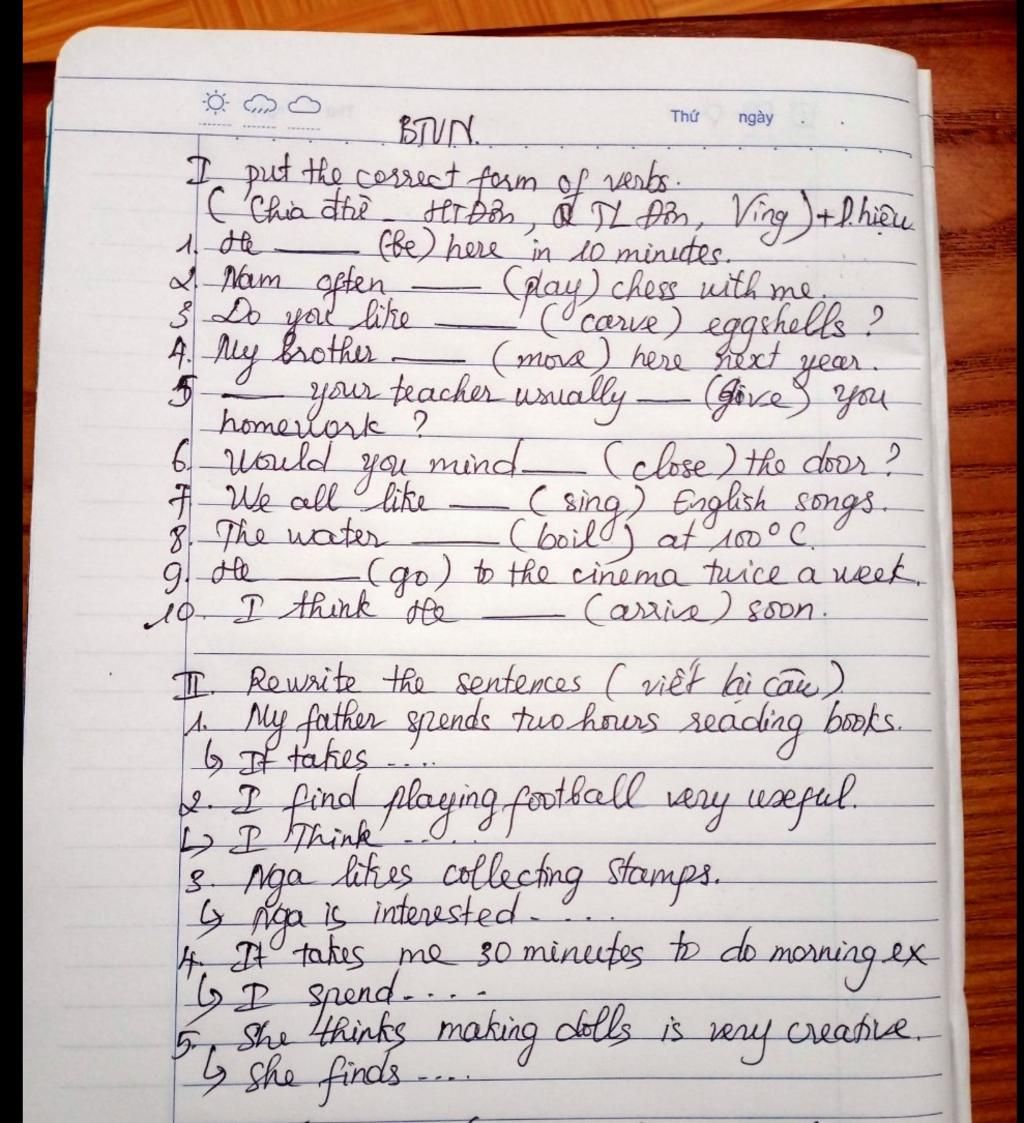 Thứ ngày
BTVN.
I put the correct form of verbs.
(Chia thì - HTĐơn, TL Đơn, Ving) + D.hiệu
1. He ___ (be) here in 10 minutes.
2. Nam often ___ (play) chess with me.
3 Do you like ___ (carve) eggshells ?
4. My brother ___ (move) here next year.
5 ___ your teacher usually ___ (give) you
homework ?
6. Would you mind ___ (close) the door ?
7 We all like ___ (sing) English songs.
8. The water ___ (boil) at 100°C.
9. He ___ (go) to the cinema twice a week.
10. I think He ___ (arrive) soon.
II. Rewrite the sentences (viết lại câu)
1. My father spends two hours reading books.
↳ It takes ....
2. I find playing football very useful.
↳ I Think .....
3. Nga likes collecting stamps.
↳ Nga is interested.....
4. It takes me 30 minutes to do morning ex
↳ I spend.....
5. She thinks making dolls is very creative.
↳ She finds ....